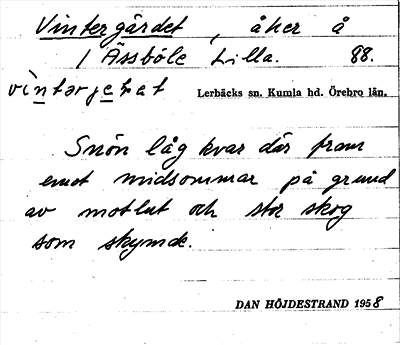 Vintergärdet, åker å
1 Åssböle Lilla. 88.
Lerbäcks sn. Kumla hd. Örebro län.
Snön låg kvar där fram
emot midsommar på grund
av motlut och stor skog
som skymde.
DAN HÖJDESTRAND 1958